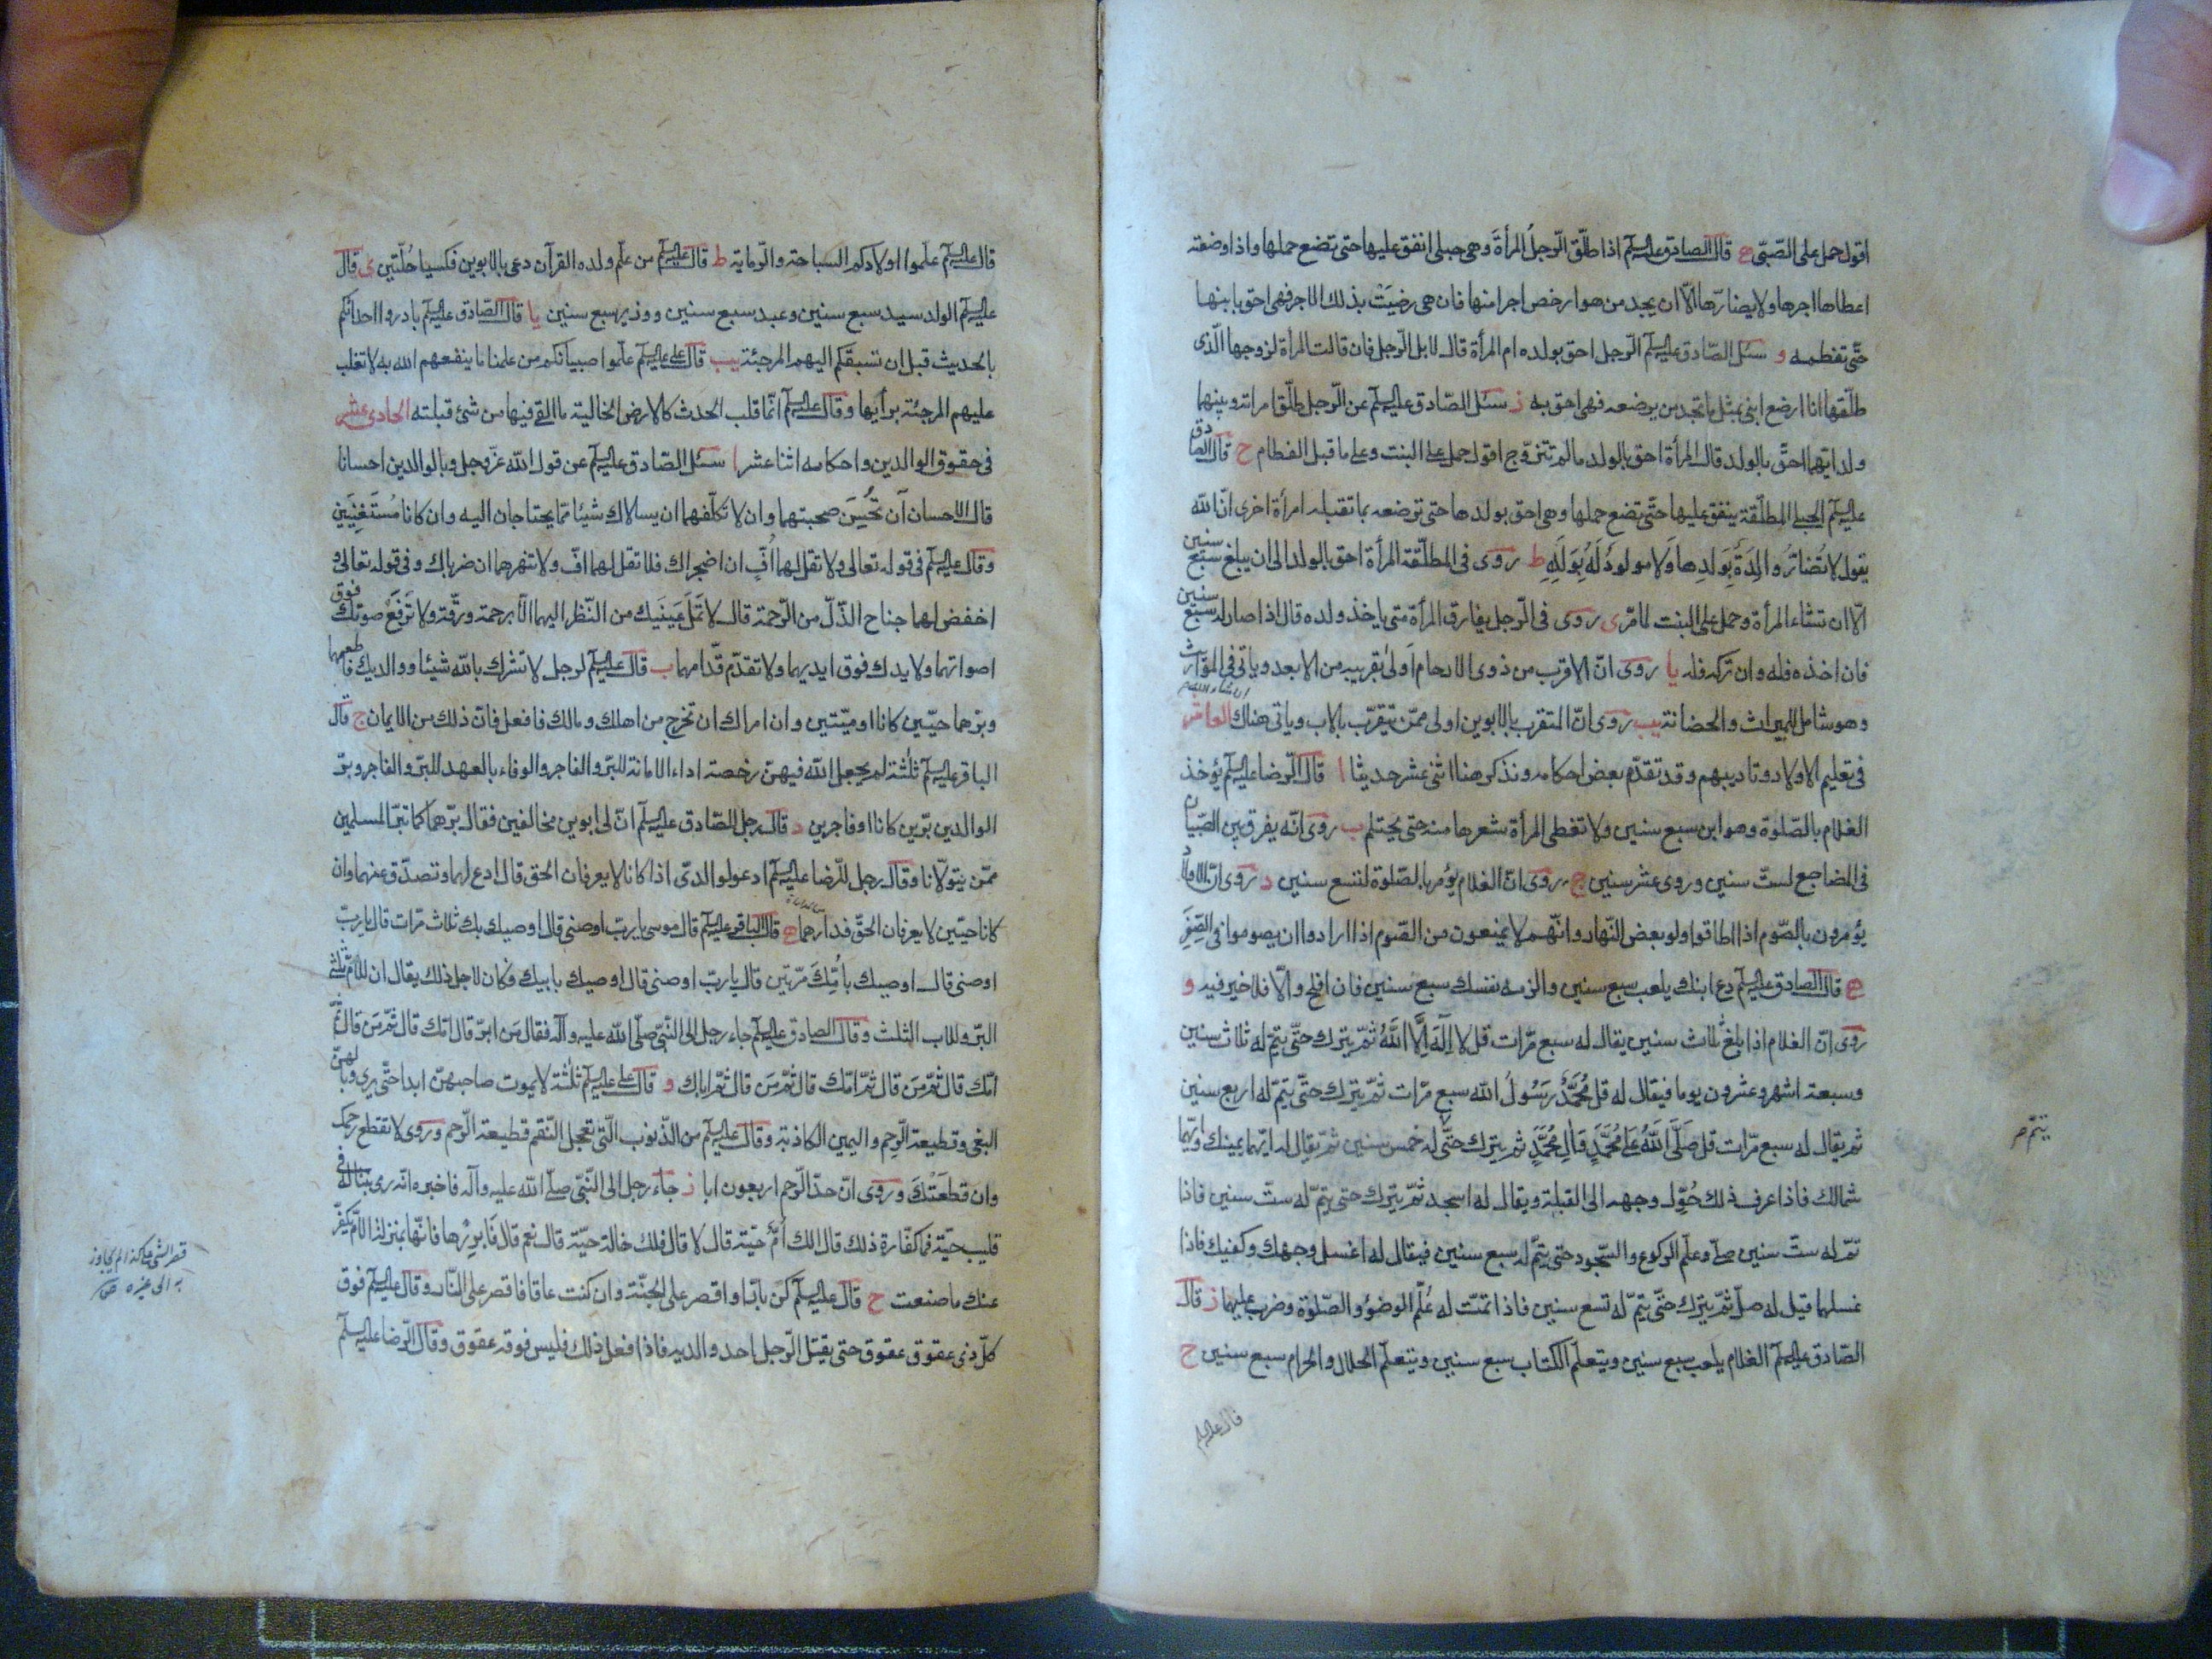 اقول حمل على الصّبيّ ه قال الصادق عليه السلم اذا طلّق الرّجلُ المرأةَ وهى حبلى انفق عليها حتى تضع حملها واذا وضعته
اعطاها اجرها ولا يضارّها الاّ ان يجد من هو ارخص اجرا منها فان هى رضيَتْ بذلك الاجر فهى احق بابنها
حتّى تفطمه و سئل الصّادق عليه السلم الرّجل احق بولده ام المرأة قال لا بل الرّجل فان قالت المرأة لزوجها الّذى
طلّقها انا ارضع ابنى بمثل ما تجد من يرضعه فهى احق به ز سئل الصّادق عليه السلم عن الرّجل طلّق امراته وبينهما
ولد ايّهما احقّ بالولد قال المرأة احق بالولد ما لم تتزوّج اقول حمل على البنت وعلى ما قبل الفطام ح قال الصّادق
عليه السلم الحبلى المطلّقة ينفق عليها حتّى تضع حملها وهى احق بولدها حتى ترضعه بما تقبله امرأة اخرى انّ الله
يقول لا تُضَارَّ والِدَةٌ بِوَلدِها وَلا مولودٌ لَهُ بِوَلَدِهِ ط روى فى المطلّقة المرأة احق بالولد الى ان يبلغ سبع سنين
الاّ ان تشاء المرأة وحمل على البنت لما مرّ ى روى فى الرّجل يفارق المرأة متى ياخذ ولده قال اذا صار له سبع سنين
فان اخذه فله وان تركه فله يا روى انّ الاقرب من ذوى الارحام اَولى بقريبه من الابعد وياتى فى المواريث ان شاء الله
وهو شامل للميراث والحضانة يب روى انّ المتقرب بالابوين اولى ممّن يتقرّب بالاب وياتى هناك العاشر
فى تعليم الاولاد وتاديبهم وقد تقدّم بعض احكامه ونذكر هنا اثنى عشر حديثا ا قال الرّضا عليه السلم يؤخذ
الغلام بالصّلوة وهو ابن سبع سنين ولا تغطى المرأة شعرها منه حتى يحتلم ب روى انّه يفرق بين الصّبيان
فى المضاجع لستّ سنين وروى عشر سنين ج روى انّ الغلام يؤمر بالصّلوة لتسع سنين د روى انّ الاولاد
يؤمرون بالصّوم اذا اطاقوا ولو بعض النّهار وانّهم لا يمنعون من الصّوم اذا ارادوا ان يصوموا فى الصِّغَرِ
ه قال الصادق عليه السلم دع ابنك يلعب سبع سنين والزمه نفسك سبع سنين فان افلح والاّ فلا خير فيه و
روى انّ الغلام اذا بلغ ثلاث سنين يقال له سبع مرّات قل لا اِلٰهَ اِلاَّ اللّٰهُ ثمّ يترك حتّى يتمّ له ثلاث سنين
وسبعة اشهر وعشرون يوما فيقال له قل مُحَمَّدٌ رَسُولُ اللّٰه سبع مرّات ثمّ يترك حتّى يتمّ له اربع سنين
ثم يقال له سبع مرّات قل صَلَّى اللّٰهُ عَلى مُحَمَّدٍ وَآلِ مُحَمَّدٍ ثم يترك حتّى له خمس سنين ثمّ يقال له ايّهما يمينك وايّهما
يتمّ صح
شمالك فاذا عرف ذلك حُوِّل وجهه الى القبلة ويقال له اسجد ثمّ يترك حتى يتمّ له ستّ سنين فاذا
تمّ له ستّ سنين صلّى وعلّم الركوع والسّجود حتى يتمّ له سبع سنين فيقال له اغسل وجهك وكفيك فاذا
غسلهما قيل له صلّ ثمّ يترك حتّى يتمّ له تسع سنين فاذا تمّت له عُلّم الوضوء والصّلوة وضرب عليهما ز قال
الصّادق عليه السلم الغلام يلعب سبع سنين ويتعلّم الكتاب سبع سنين ويتعلّم الحلال والحرام سبع سنين ح
قال عليه السلم
قال عليه السلم علّموا اولادكم السباحة والرّماية ط قال عليه السلم من علّم ولده القرآن دعى بالابوين فكسيا حُلّتين ى قال
عليه السلم الولد سيد سبع سنين وعبد سبع سنين ووزير سبع سنين يا قال الصّادق عليه السلم بادروا احداثكم
بالحديث قبل ان تسبقكم اليهم المرجئة يب قال على عليه السلم علّموا صبيانكم من علمنا ما ينفعهم الله به لا تغلب
عليهم المرجئة برأيها وقال عليه السلم انّما قلب الحدث كالارض الخالية ما القى فيها من شئ قبلته الحادى عشر
فى حقوق الوالدين واحكامه اثنا عشر ا سئل الصّادق عليه السلم عن قول الله عزّ وجل وبالوالدين احسانا
قال الاحسان اَن تُحْسِنَ صحبتهما وان لا تكلّفهما ان يسالاك شيئا ممّا يحتاجان اليه وان كانا مُستَغنِيَينِ
وقال عليه السلم فى قوله تعالى ولا تقل لهما اُفٍّ ان اضجراك فلا تقل لهما افّ ولا تنهرهما ان ضرباك وفى قوله تعالى و
اخفض لهما جناح الذّلّ من الرّحمة قال لا تَمَلَّ عَينَيك من النّظر اليهما الاّ برحمة ورقّة ولا تَرفَع صوتك فوق
اصواتهما ولا يدك فوق ايديهما ولا تقدّم قدّامهما ب قال عليه السلم لرجل لا تشرك بالله شيئا ووالديك فاطعهما
وبرّهما حيّين كانا او ميّتين وان امراك ان تخرج من اهلك ومالك فافعل فانّ ذلك من الايمان ج قال
الباقر عليه السلم ثلٰثة لم يجعل الله فيهنّ رخصة اداء الامانة للبرّ والفاجر والوفاء بالعهد للبرّ والفاجر وبرّ
الوالدين برّين كانا او فاجرين د قال رجل للصّادق عليه السلم انّ لى ابوين مخالفين فقال برّهما كما تبرّ المسلمين
ممّن يتولاّنا وقال رجل للرّضا عليه السلم ادعو لوالدىّ اذا كانا لا يعرفان الحق قال ادع لهما وتصدّق عنهما وان
كانا حيّين لا يعرفان الحقّ فدارهما ه قال الباقر عليه السلم قال موسى يا ربّ اوصنى قال اوصيك بك ثلاث مرّات قال يا ربّ
اوصنى قال اوصيك بأُمِّكَ مرّتين قال يا ربّ اوصنى قال اوصيك بابيك فكان لاجل ذلك يقال ان للامّ ثلثى
البرّ وللاب الثلث وقال الصادق عليه السلم جاء رجل الى النّبىّ صلّى الله عليه وآله فقال مَن ابرّ قال امّك قال ثمّ مَن قال ثمّ
امّك قال ثمّ مَن قال ثمّ امّك قال ثمّ مَن قال ثمّ اباك و قال على عليه السلم ثلٰثة لا يموت صاحبهنّ ابدا حتّى يرى وبالهنّ
البغى وقطيعة الرّحِم واليمين الكاذبة وقال عليه السلم من الذّنوب الّتى تعجل النّقم قطيعة الرّحم وروى لا تقطع رحمك
وان قطعَتْكَ وروى انّ حدّ الرّحم اربعون ابا ز جاء رجل الى النّبىّ صلّى الله عليه وآله فاخبره انّه رمى بنتا له فى
قليب حيّة فما كفّارة ذلك قال الك اُمٌّ حيّة قال لا قال فلك خالة حيّة قال نعم قال فَابرِرْها فانّها بمنزلة الامّ يكفّر
عنك ما صنعت ح قال عليه السلم كن بارّا واقصر على الجنّة وان كنت عاقا فاقصر على النّار وقال عليه السلم فوق
كلّ ذى عقوق عقوق حتى يقتل الرّجل احد والديه فاذا فعل ذلك فليس فوقه عقوق وقال الرّضا عليه السلم
قصر الشئ على كذا لم يجاوز
به الى غيره ص